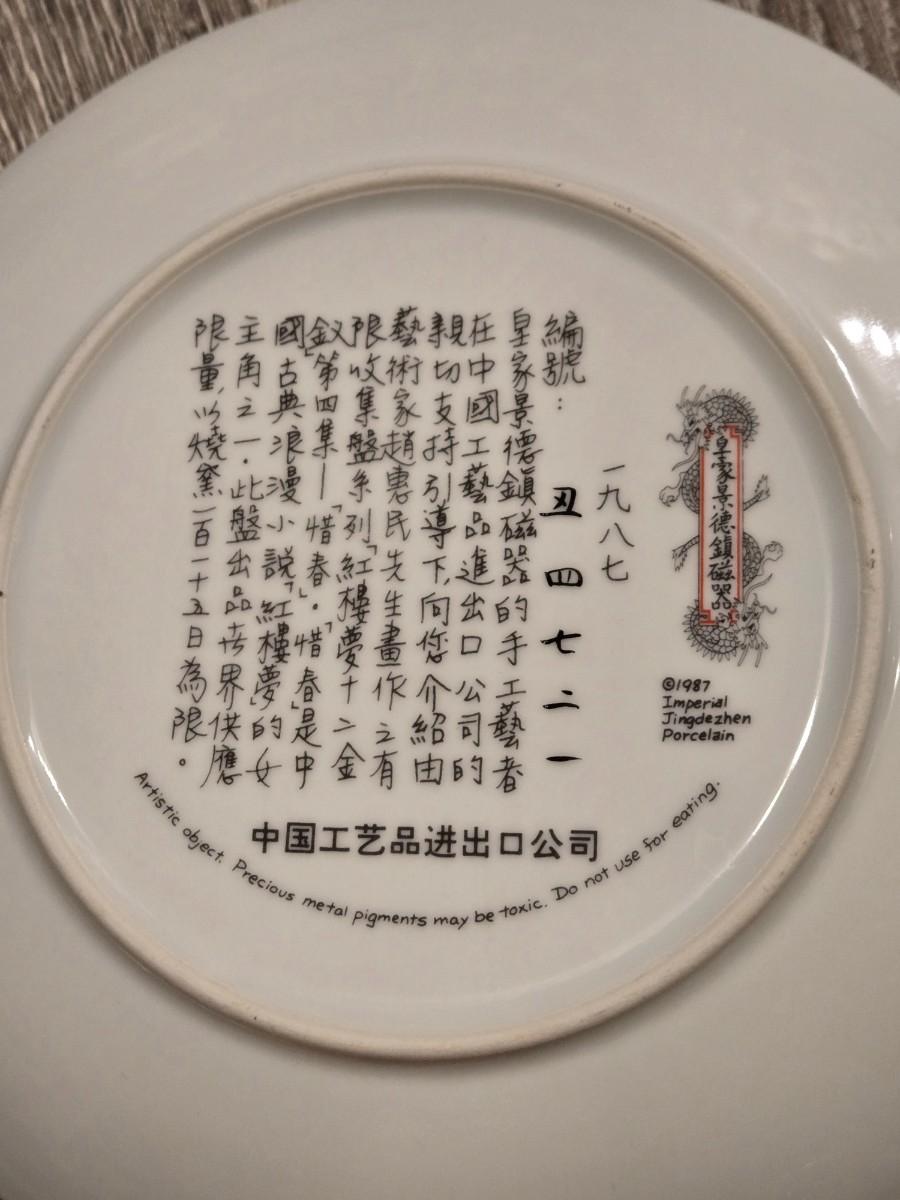 皇家景德鎮磁器
©1987
Imperial
Jingdezhen
Porcelain
一九八七
編號：丑四七二一
皇家景德鎮磁器的手工藝者
在中國工藝品進出口公司的
親切支持引導下,向您介紹由
藝術家趙惠民先生畫作之有
限收集盤系列「紅樓夢十二金
釵」第四集—「惜春」。「惜春」是中
國古典浪漫小說「紅樓夢」的女
主角之一.此盤出品世界供應
限量,以燒窯一百一十五日為限。
中国工艺品进出口公司
Artistic object. Precious metal pigments may be toxic. Do not use for eating.